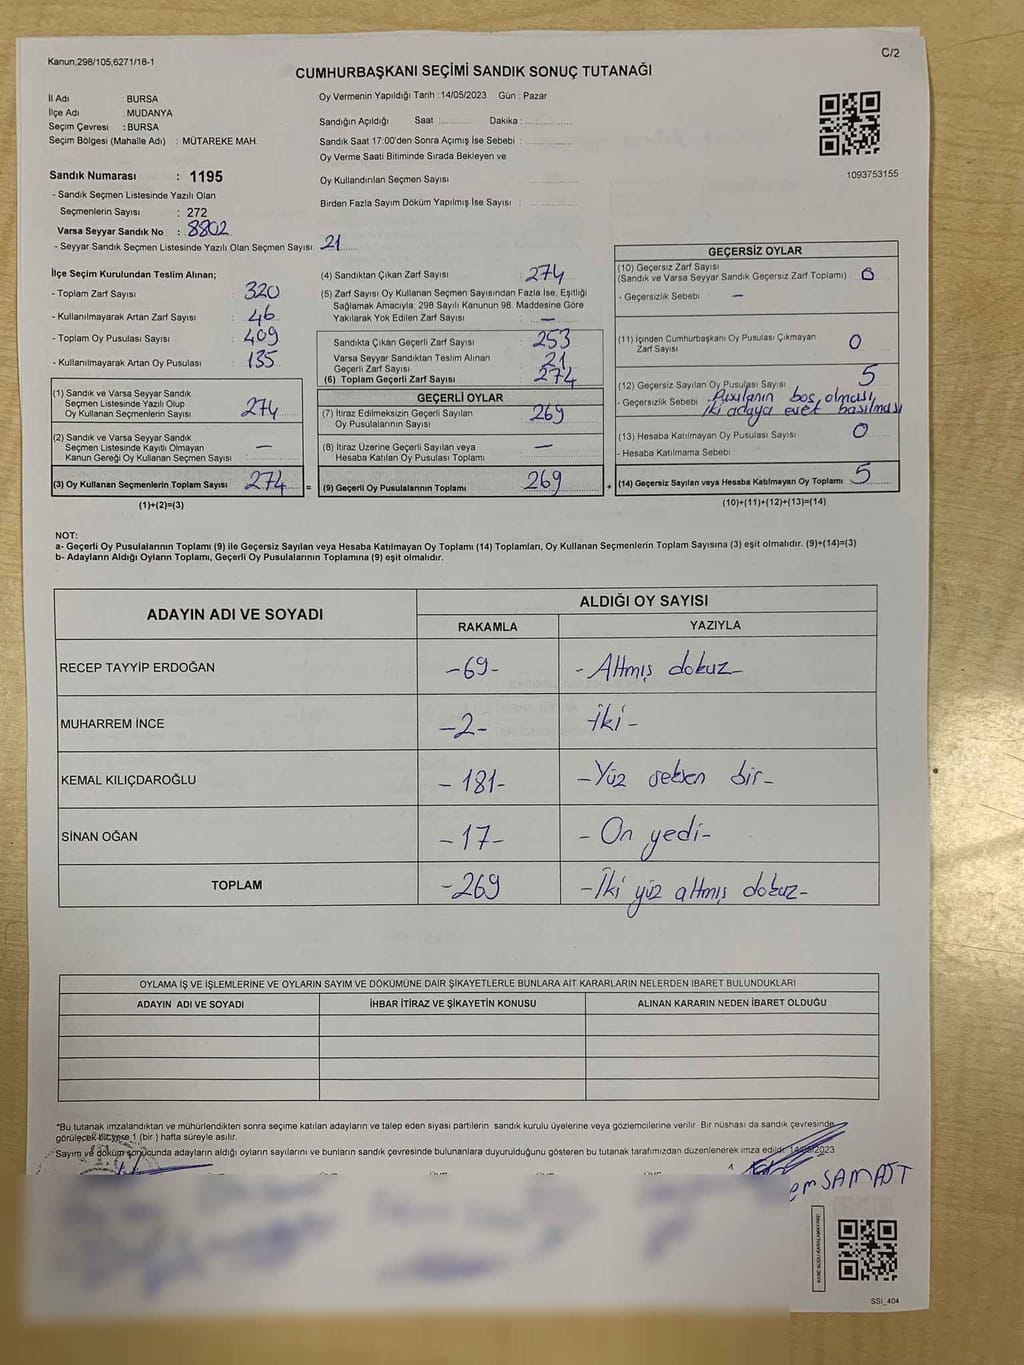 Kanun,298/105,6271/18-1
C/2
CUMHURBAŞKANI SEÇİMİ SANDIK SONUÇ TUTANAĞI
İl Adı : BURSA
İlçe Adı : MUDANYA
Seçim Çevresi : BURSA
Seçim Bölgesi (Mahalle Adı) : MÜTAREKE MAH.
Oy Vermenin Yapıldığı Tarih : 14/05/2023 Gün : Pazar
Sandığın Açıldığı Saat :............ Dakika :................
Sandık Saat 17:00'den Sonra Açımış İse Sebebi :................
Oy Verme Saati Bitiminde Sırada Bekleyen ve
Oy Kullandırılan Seçmen Sayısı :............
Birden Fazla Sayım Döküm Yapılmış İse Sayısı :............
1093753155
Sandık Numarası : 1195
- Sandık Seçmen Listesinde Yazılı Olan
Seçmenlerin Sayısı : 272
Varsa Seyyar Sandık No : 8802
- Seyyar Sandık Seçmen Listesinde Yazılı Olan Seçmen Sayısı: 21
İlçe Seçim Kurulundan Teslim Alınan;
- Toplam Zarf Sayısı : 320
- Kullanılmayarak Artan Zarf Sayısı : 46
- Toplam Oy Pusulası Sayısı : 409
- Kullanılmayarak Artan Oy Pusulası : 135
(1) Sandık ve Varsa Seyyar Sandık
Seçmen Listesinde Yazılı Olup
Oy Kullanan Seçmenlerin Sayısı : 274
(2) Sandık ve Varsa Seyyar Sandık
Seçmen Listesinde Kayıtlı Olmayan
Kanun Gereği Oy Kullanan Seçmen Sayısı : —
(3) Oy Kullanan Seçmenlerin Toplam Sayısı : 274 =
(1)+(2)=(3)
(4) Sandıktan Çıkan Zarf Sayısı : 274
(5) Zarf Sayısı Oy Kullanan Seçmen Sayısından Fazla İse, Eşitliği
Sağlamak Amacıyla; 298 Sayılı Kanunun 98. Maddesine Göre
Yakılarak Yok Edilen Zarf Sayısı : —
Sandıkta Çıkan Geçerli Zarf Sayısı : 253
Varsa Seyyar Sandıktan Teslim Alınan
Geçerli Zarf Sayısı : 21
(6) Toplam Geçerli Zarf Sayısı : 274
GEÇERLİ OYLAR
(7) İtiraz Edilmeksizin Geçerli Sayılan
Oy Pusulasının Sayısı : 269
(8) İtiraz Üzerine Geçerli Sayılan veya
Hesaba Katılan Oy Pusulası Toplamı : —
(9) Geçerli Oy Pusulalarının Toplamı : 269 +
GEÇERSİZ OYLAR
(10) Geçersiz Zarf Sayısı
(Sandık ve Varsa Seyyar Sandık Geçersiz Zarf Toplamı) : 0
- Geçersizlik Sebebi : —
(11) İçinden Cumhurbaşkanı Oy Pusulası Çıkmayan
Zarf Sayısı : 0
(12) Geçersiz Sayılan Oy Pusulası Sayısı : 5
- Geçersizlik Sebebi : Pusulanın boş olması,
iki adaya evet basılması
(13) Hesaba Katılmayan Oy Pusulası Sayısı : 0
- Hesaba Katılmama Sebebi :
(14) Geçersiz Sayılan veya Hesaba Katılmayan Oy Toplamı : 5
(10)+(11)+(12)+(13)=(14)
NOT:
a- Geçerli Oy Pusulalarının Toplamı (9) ile Geçersiz Sayılan veya Hesaba Katılmayan Oy Toplamı (14) Toplamları, Oy Kullanan Seçmenlerin Toplam Sayısına (3) eşit olmalıdır. (9)+(14)=(3)
b- Adayların Aldığı Oyların Toplamı, Geçerli Oy Pusulalarının Toplamına (9) eşit olmalıdır.
ADAYIN ADI VE SOYADI
ALDIĞI OY SAYISI
RAKAMLA YAZIYLA
RECEP TAYYİP ERDOĞAN -69- - Altmış dokuz-
MUHARREM İNCE -2- iki-
KEMAL KILIÇDAROĞLU - 181- -Yüz seksen bir-
SİNAN OĞAN -17- - On yedi-
TOPLAM -269 -İki yüz altmış dokuz-
OYLAMA İŞ VE İŞLEMLERİNE VE OYLARIN SAYIM VE DÖKÜMÜNE DAİR ŞİKAYETLERLE BUNLARA AİT KARARLARIN NELERDEN İBARET BULUNDUKLARI
ADAYIN ADI VE SOYADI İHBAR İTİRAZ VE ŞİKAYETİN KONUSU ALINAN KARARIN NEDEN İBARET OLDUĞU
*Bu tutanak imzalandıktan ve mühürlendikten sonra seçime katılan adayların ve talep eden siyasi partilerin sandık kurulu üyelerine veya gözlemcilerine verilir. Bir nüshası da sandık çevresinde
görülecek bir yere 1 (bir ) hafta süreyle asılır.
Sayım ve döküm sonucunda adayların aldığı oyların sayılarını ve bunların sandık çevresinde bulunanlara duyurulduğunu gösteren bu tutanak tarafımızdan düzenlenerek imza edildi. 14/05/2023
SSI_404